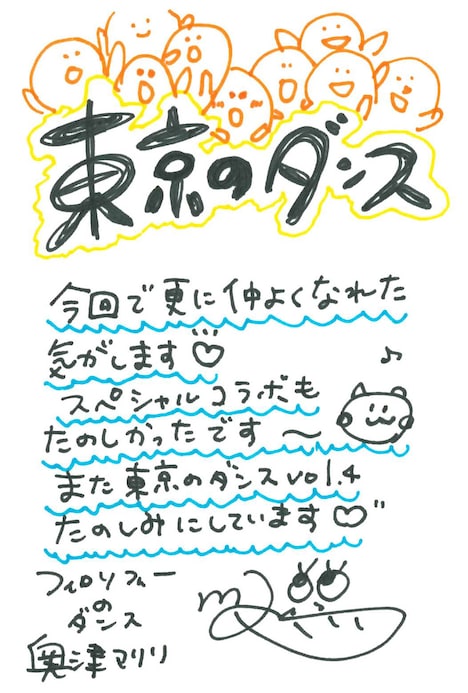 東京のダンス
今回で更に仲よくなれた
気がします♡
スペシャルコラボも
たのしかったです〜
また東京のダンスvol.4
たのしみにしています♡
フィロソフィー
の
ダンス
奥津マリリ